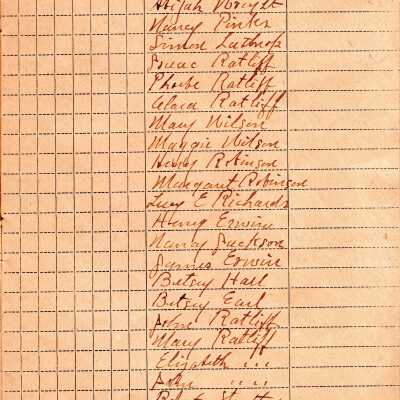 Abijah Wright
Nancy Pinks
Simon Lathrop
Isaac Ratliff
Phoebe Ratliff
Clara Ratliff
Mary Wilson
Maggie Wilson
Henry Robinson
Margaret Robinson
Lucy E Richards
Henry Erwine
Nancy Jackson
James Erwine
Betsey Hall
Betsey Earl
John Ratliff
Mary Ratliff
Elizabeth " "
John " "